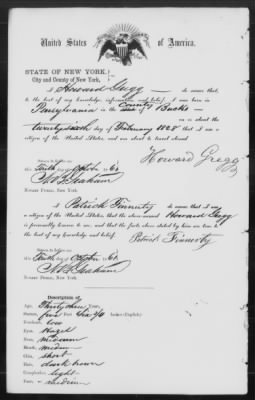 United States of America.
STATE OF NEW YORK,
City and County of New York,
I Howard Gregg do swear that
to the best of my knowledge, information and belief, I was born in
Pennsylvania in the County of Bucks
on or about the
twenty sixth day of February 1828 that I am a
citizen of the United States, and am about to travel abroad
Sworn to before me
this tenth day of October 1861
Howard Gregg
NOTARY PUBLIC, NEW YORK.
I Patrick Finnerty do swear that I am a
citizen of the United States, that the above-named Howard Gregg
is personally known to me, and that the facts above stated by him are true to
the best of my knowledge and belief.
Patrick Finnerty
Sworn to before me
this tenth day of October 1861
NOTARY PUBLIC, NEW YORK.
Description of
Age, Thirty three Years,
Stature, five feet Six Inches (English)
Forehead, low
Eyes, Hazel
Nose, medium
Mouth, medium
Chin, short
Hair, dark brown
Complexion, light
Face, medium